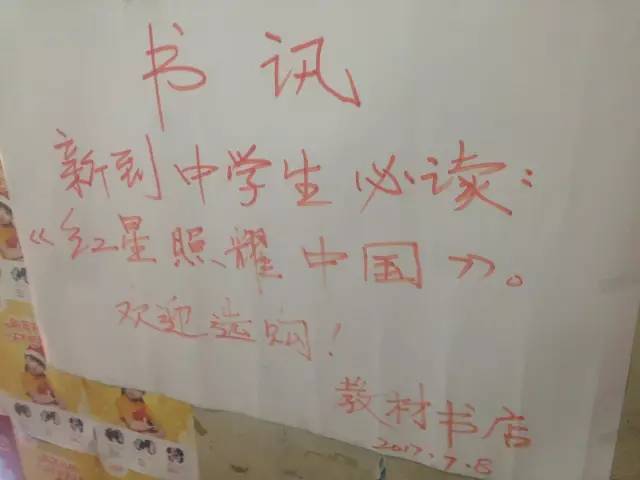 书讯
新到中学生必读：
《红星照耀中国》。
欢迎选购！
教材书店
2017.7.8